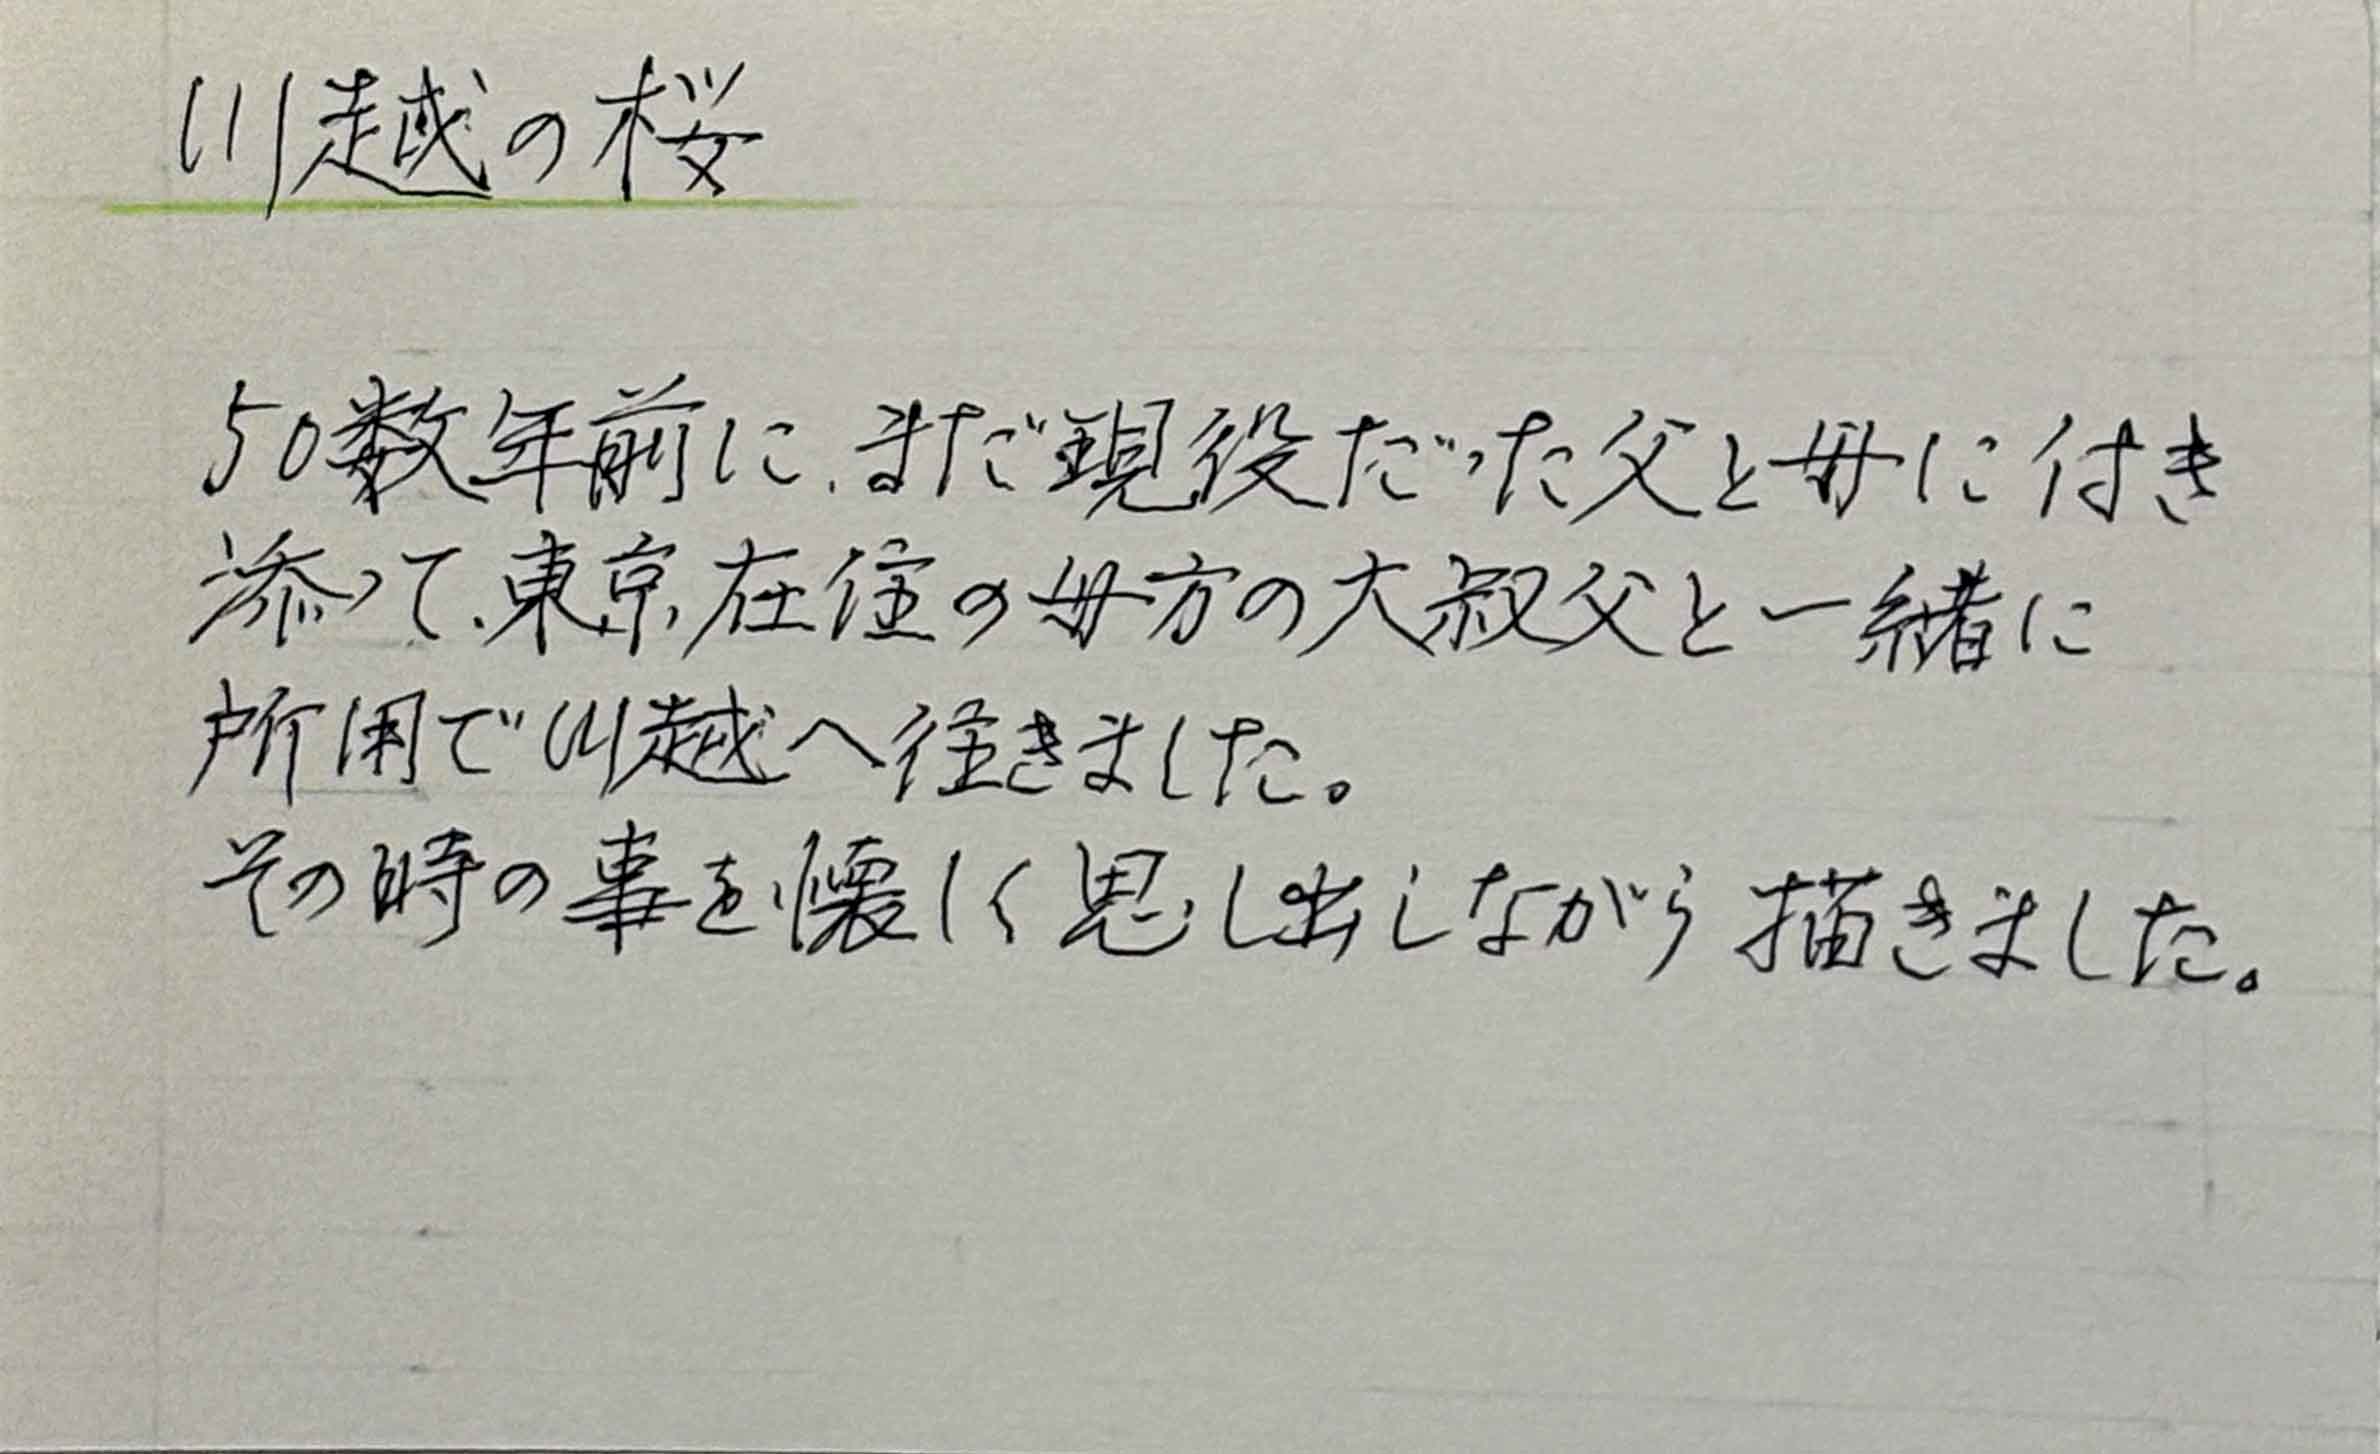 川越の桜
50数年前に、まだ現役だった父と母に付き
添って、東京在住の母方の大叔父と一緒に
所用で川越へ往きました。
その時の事を懐しく思し出しながら描きました。